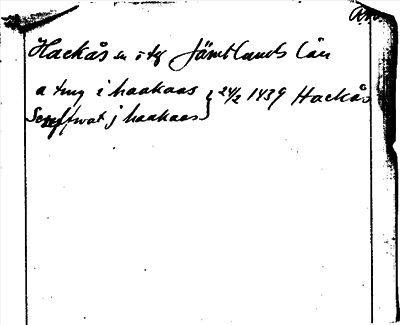 Hackås sn o tg Jämtlands län
a ting i haakaas } 24/2 1439 Hackås
Screffwat j haakaas